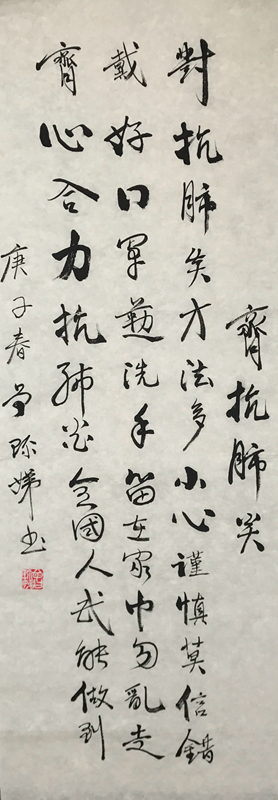 齊抗肺炎
對抗肺炎方法多小心謹慎莫信錯
戴好口罩勤洗手留在家中勿亂走
齊心合力抗肺炎全國人民能做到
庚子春 珍娣書